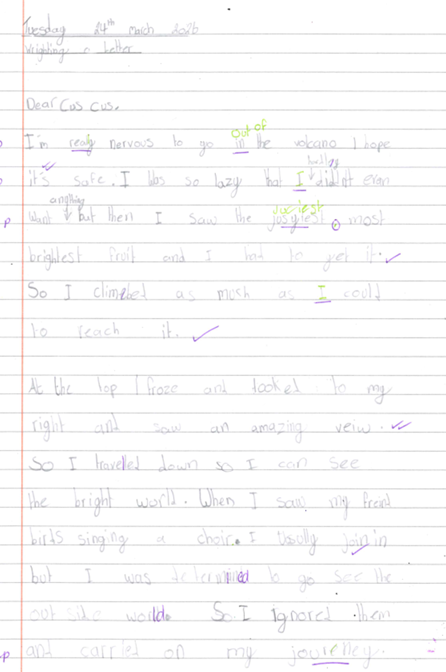 Tuesday 24th March 2026
Wrighting a letter
Dear Cus Cus.
out of
I'm realy nervous to go in the volcano I hope
it's safe. I was so lazy that I didn't even
anything
want but then I saw the
juciest
jusyiest, most
brightest fruit and I had to get it.
So I climbed as mush as I could
to reach it.
At the top I froze and looked to my
right and saw an amazing veiw.
So I travelled down so I can see
the bright world. When I saw my freind
birds singing a choir. I Usully join in
but I was determined to go see the
out side world. So I Ignored them
and carried on my joureney.